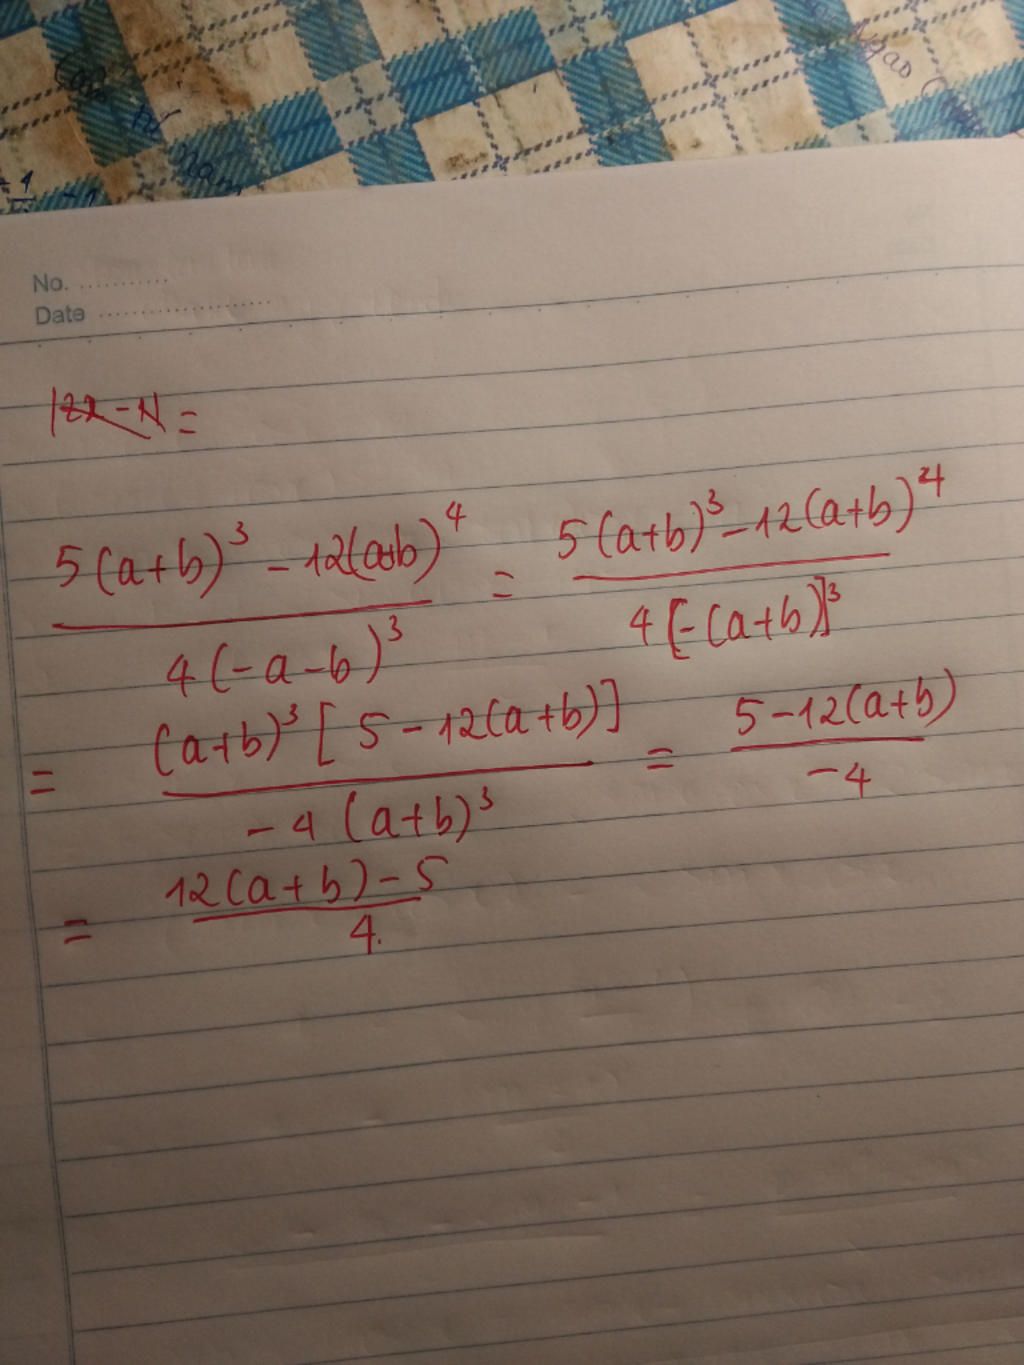 No. ...........
Date ......................
5(a+b)³ - 12(a+b)⁴ / 4(-a-b)³ = 5(a+b)³ - 12(a+b)⁴ / 4[-(a+b)]³
= (a+b)³ [5 - 12(a+b)] / -4 (a+b)³ = 5 - 12(a+b) / -4
= 12(a+b) - 5 / 4.